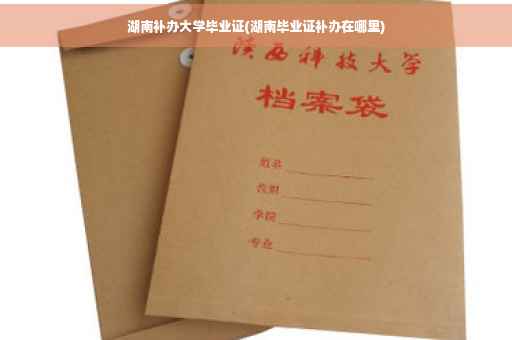 湖南补办大学毕业证(湖南毕业证补办在哪里)
陕西科技大学
档案袋
姓名
学院
专业